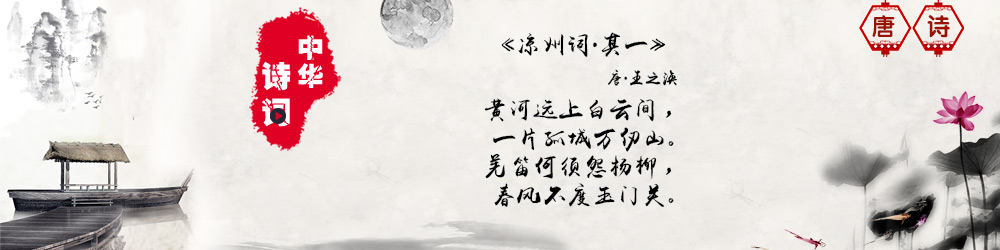 中华
诗词
《凉州词·其一》
唐·王之涣
黄河远上白云间，
一片孤城万仞山。
羌笛何须怨杨柳，
春风不度玉门关。
唐诗